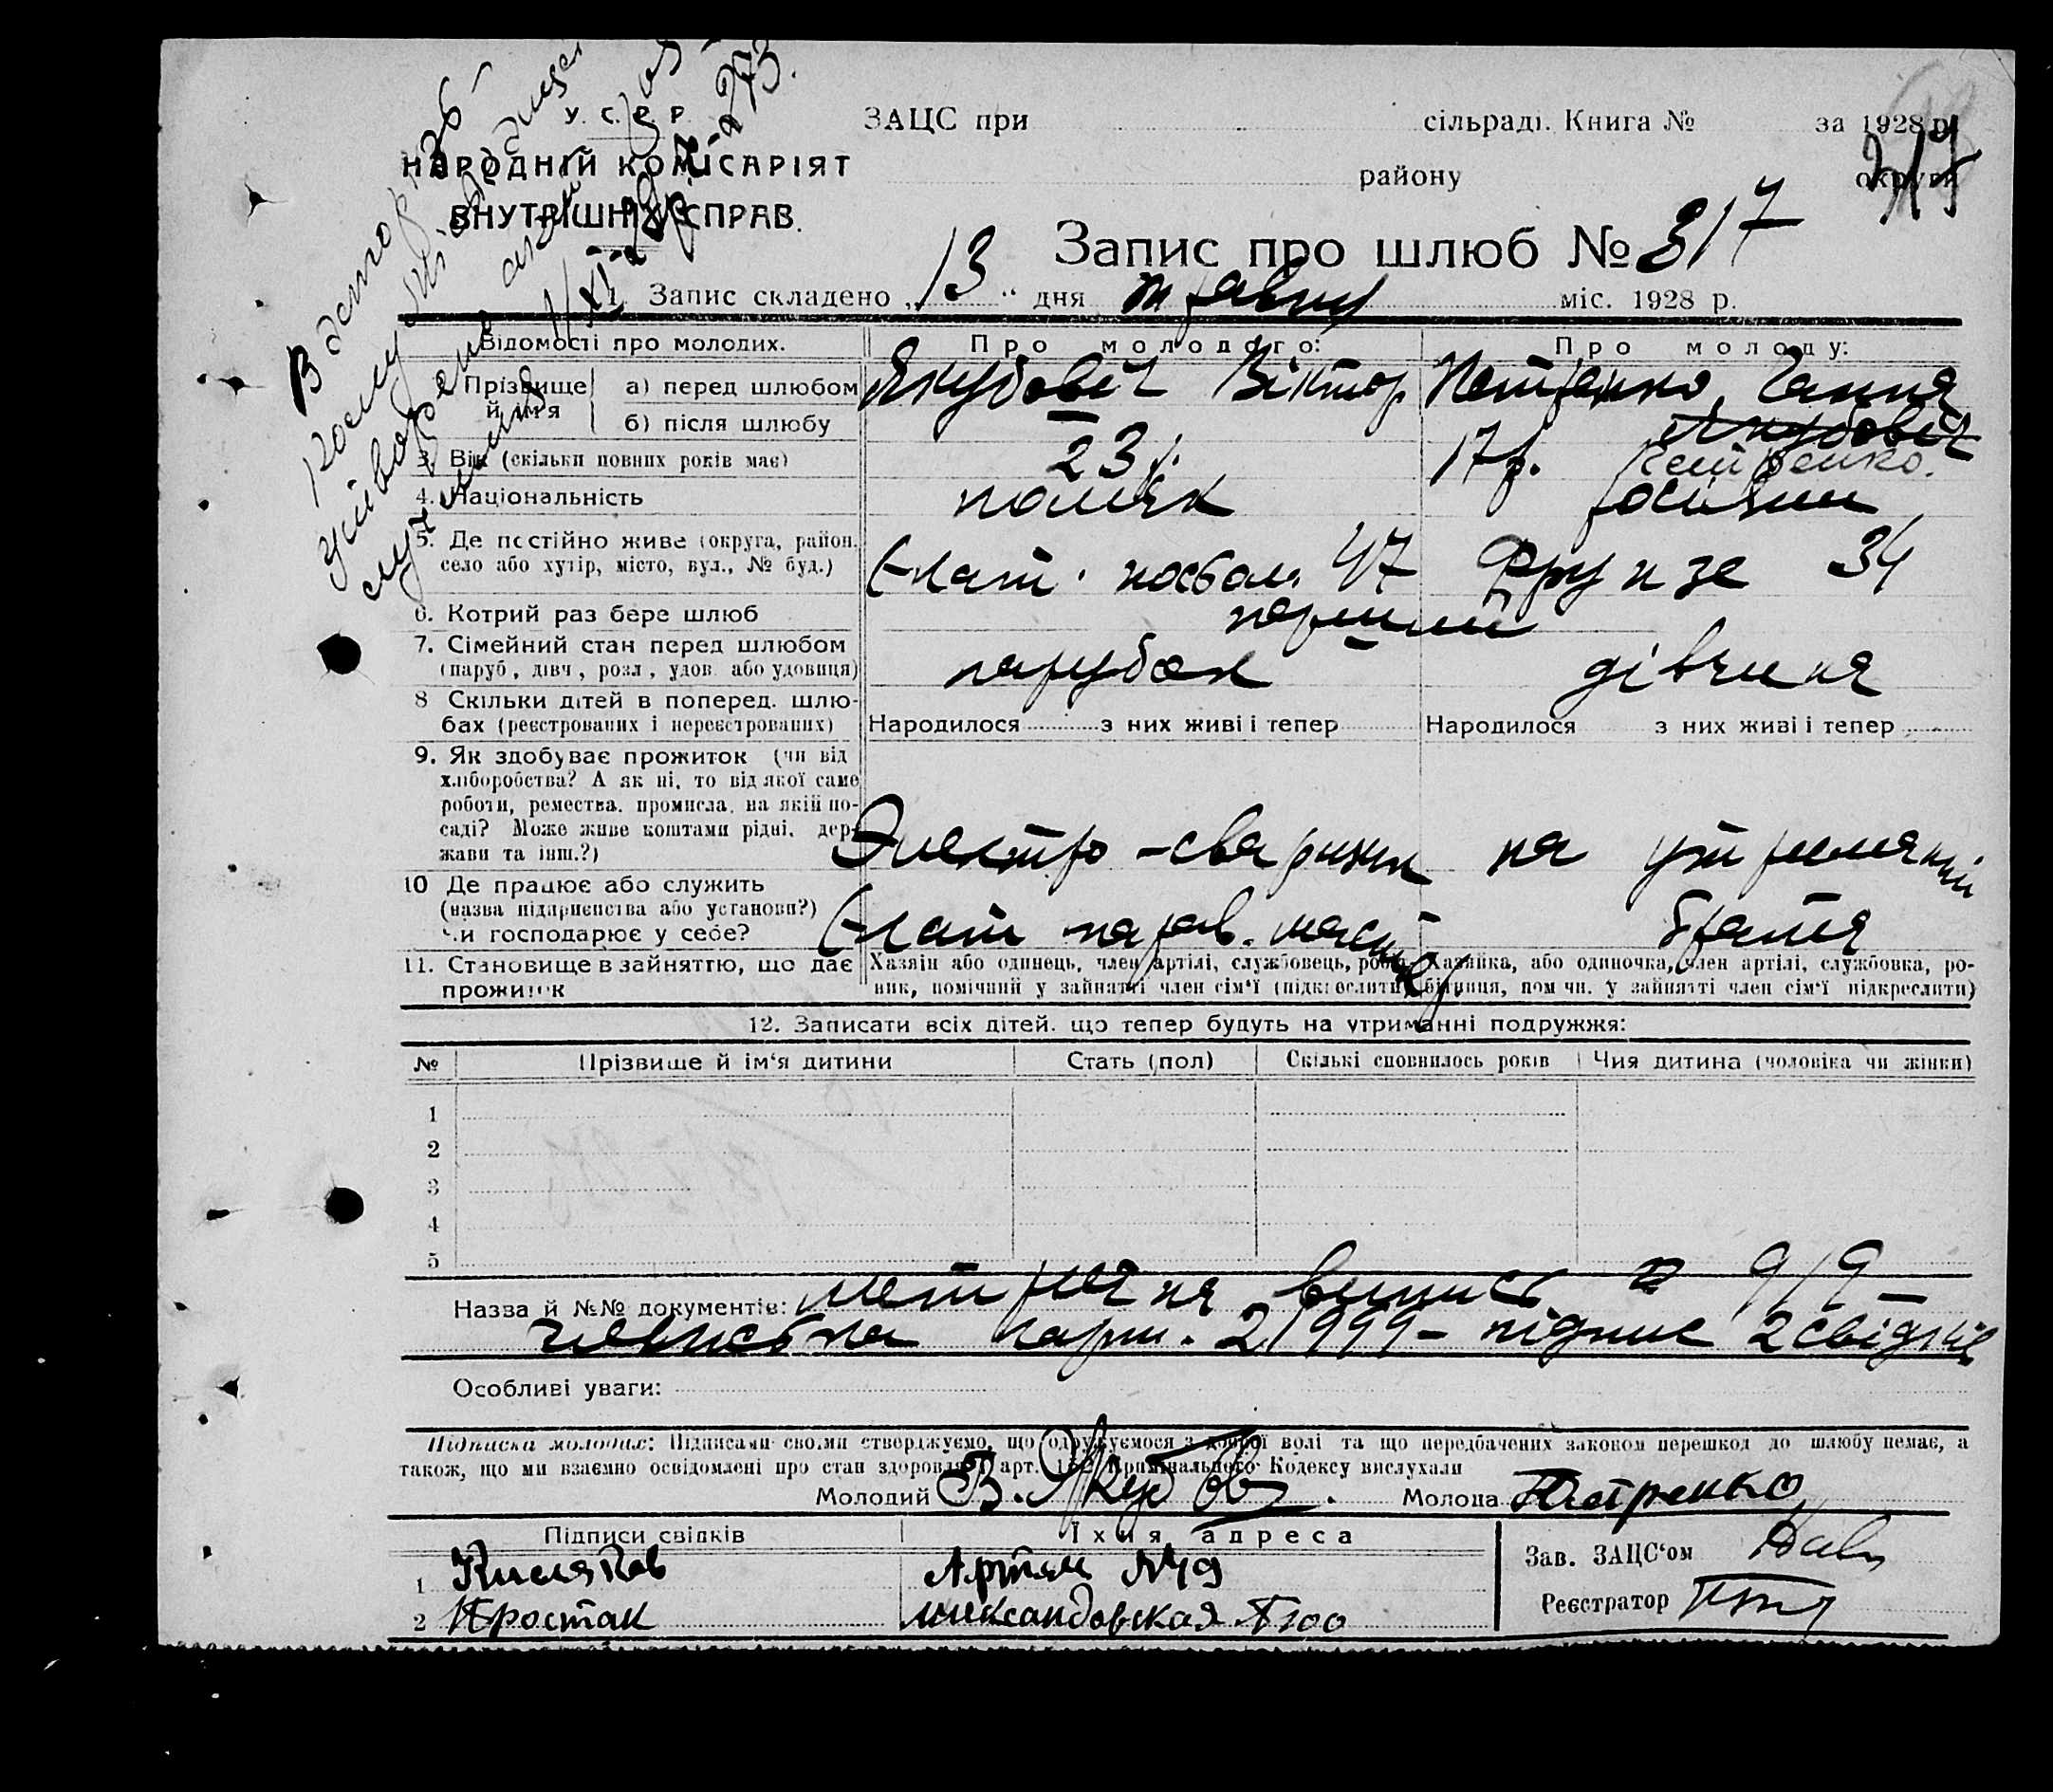 У. С. Р. Р.
НАРОДНІЙ КОМІСАРІЯТ
ВНУТРІШНІХ СПРАВ.
ЗАЦС при сільраді. Книга № за 1928 р.
району округи
Запис про шлюб № 317
1. Запис складено „13“ дня травня міс. 1928 р.
Відомості про молодих. Про молодого: Про молоду:
Прізвище й ім'я а) перед шлюбом Якубовіч Віктор Петренко Ганна
б) після шлюбу Якубовіч
3. Вік (скільки повних років має) 23 р. 17 р. Петренко.
4. Національність поляк росіянин
5. Де постійно живе (округа, район,
село або хутір, місто, вул., № буд.) 47 Фрунзе 34
6. Котрий раз бере шлюб перший
7. Сімейний стан перед шлюбом
(паруб., дівч., розл., удов. або удовиця) парубок дівчина
8 Скільки дітей в поперед. шлю-
бах (реєстрованих і нереєстрованих) Народилося з них живі і тепер Народилося з них живі і тепер
9. Як здобуває прожиток (чи від
хліборобства? А як ні, то від якої саме
роботи, ремества, промисла, на якій по-
саді? Може живе коштами рідні, дер-
жави та інш.?) Электро-сварщик на утриманні
10 Де працює або служить
(назва підприємства або установи?)
чи господарює у себе? парав. брата
11. Становище в зайняттю, що дає
прожиток
Хазяїн або одинець, член артілі, службовець, робіт-
ник, помічний у зайнятті член сім'ї (підкреслити)
Хазяйка, або одиночка, член артілі, службовка, ро-
бітниця, пом чн. у зайнятті член сім'ї підкреслити)
12. Записати всіх дітей, що тепер будуть на утриманні подружжя:
№ Прізвище й ім'я дитини Стать (пол) Скількі сповнилось років Чия дитина (чоловіка чи жінки)
1
2
3
4
5
Назва й №№ документів: метрична випись 919 –
членська парт. 21999 – підпис 2 свідків
Особливі уваги:
Підписка молодих: Підписами своїми стверджуємо, що одружуємося з доброї волі та що передбачених законом перешкод до шлюбу немає, а
також, що ми взаємно освідомлені про стан здоровля і арт. Кримінального Кодексу вислухали
Молодий В. Якубов Молода Петренко
Підписи свідків Їхня адреса
Зав. ЗАЦС'ом
1 Кисляков Артем №49
Реєстратор
2 Простак Александовская №100